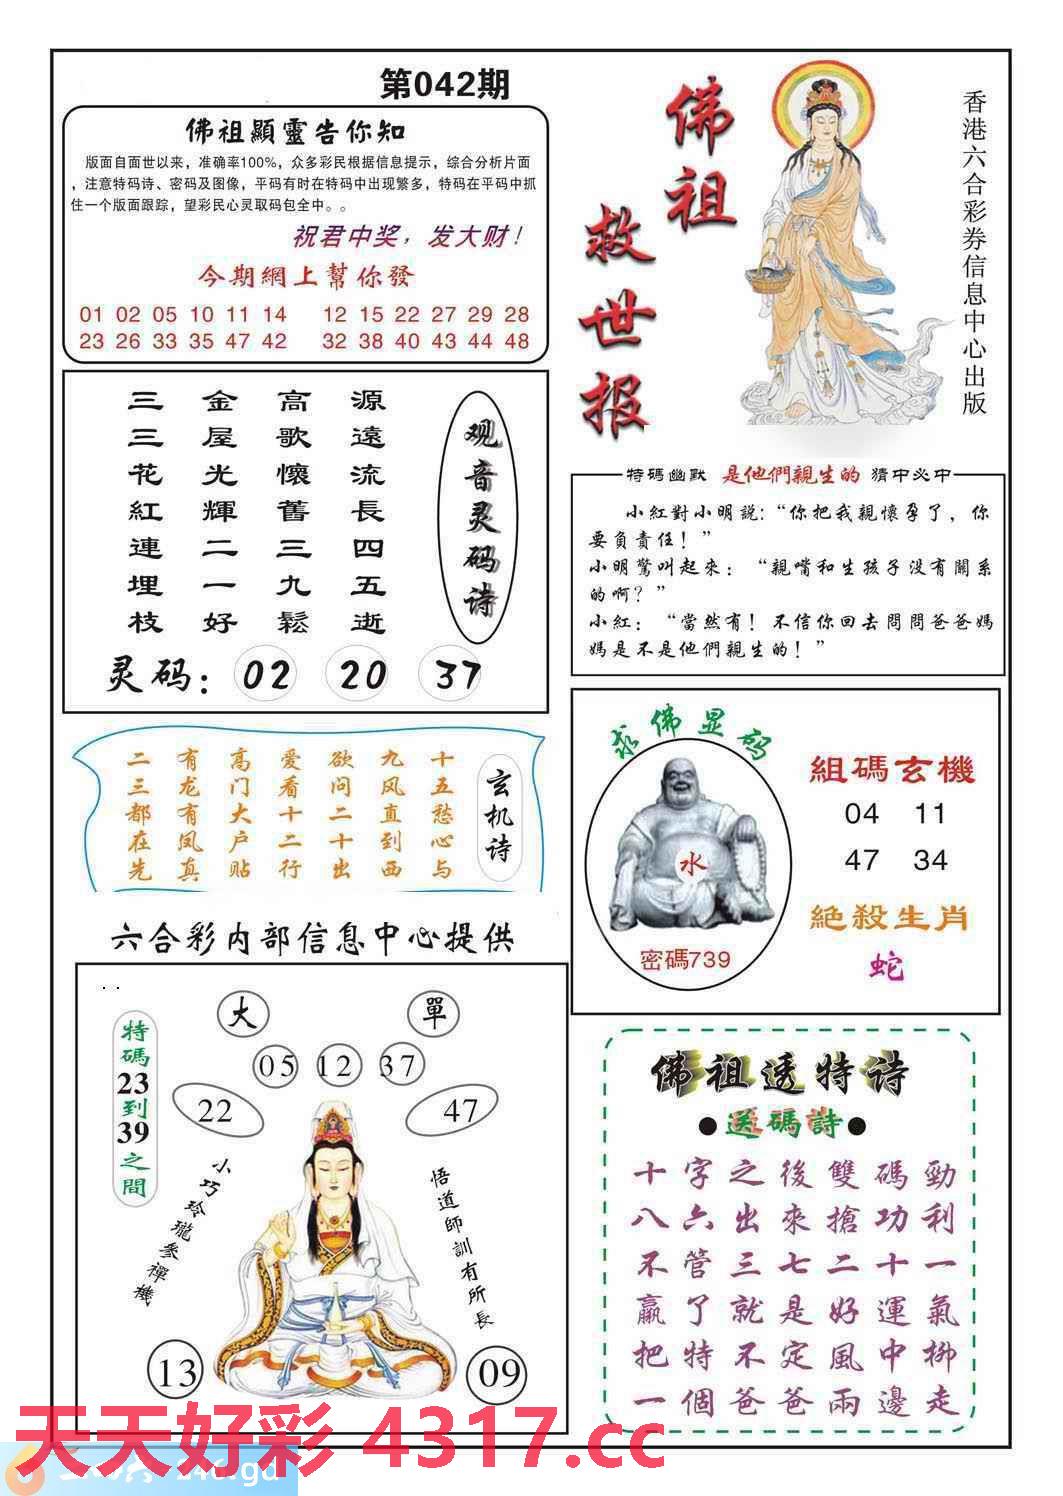 第042期
佛祖顯靈告你知
版面自面世以来，准确率100%，众多彩民根据信息提示，综合分析片面
，注意特码诗、密码及图像，平码有时在特码中出现繁多，特码在平码中抓
住一个版面跟踪，望彩民心灵取码包全中。。
祝君中奖，发大财！
今期網上幫你發
01 02 05 10 11 14 12 15 22 27 29 28
23 26 33 35 47 42 32 38 40 43 44 48
佛祖
救世报
香港六合彩券信息中心出版
观音灵码诗
源遠流長四五逝
高歌懷舊三九鬆
金屋光輝二一好
三三花紅連埋枝
灵码：02 20 37
特碼幽默 是他們親生的 猜中必中
小紅對小明説：“你把我親懷孕了，你
要負責任！”
小明驚叫起來：“親嘴和生孩子没有關系
的啊？”
小紅：“當然有！不信你回去問問爸爸媽
媽是不是他們親生的！”
玄机诗
十五愁心与
九风直到西
欲问二十出
爱看十二行
高门大户贴
有龙有凤真
二三都在先
求佛显码
水
密碼739
組碼玄機
04 11
47 34
絶殺生肖
蛇
六合彩内部信息中心提供
特碼23到39之間
大 單
05 12 37
22 47
小巧玲瓏參禪機
悟道師訓有所長
13 09
佛祖透特诗
●送碼詩●
十字之後雙碼勁
八六出來搶功利
不管三七二十一
赢了就是好運氣
把特不定風中柳
一個爸爸兩邊走
天天好彩 4317.cc
246.gd